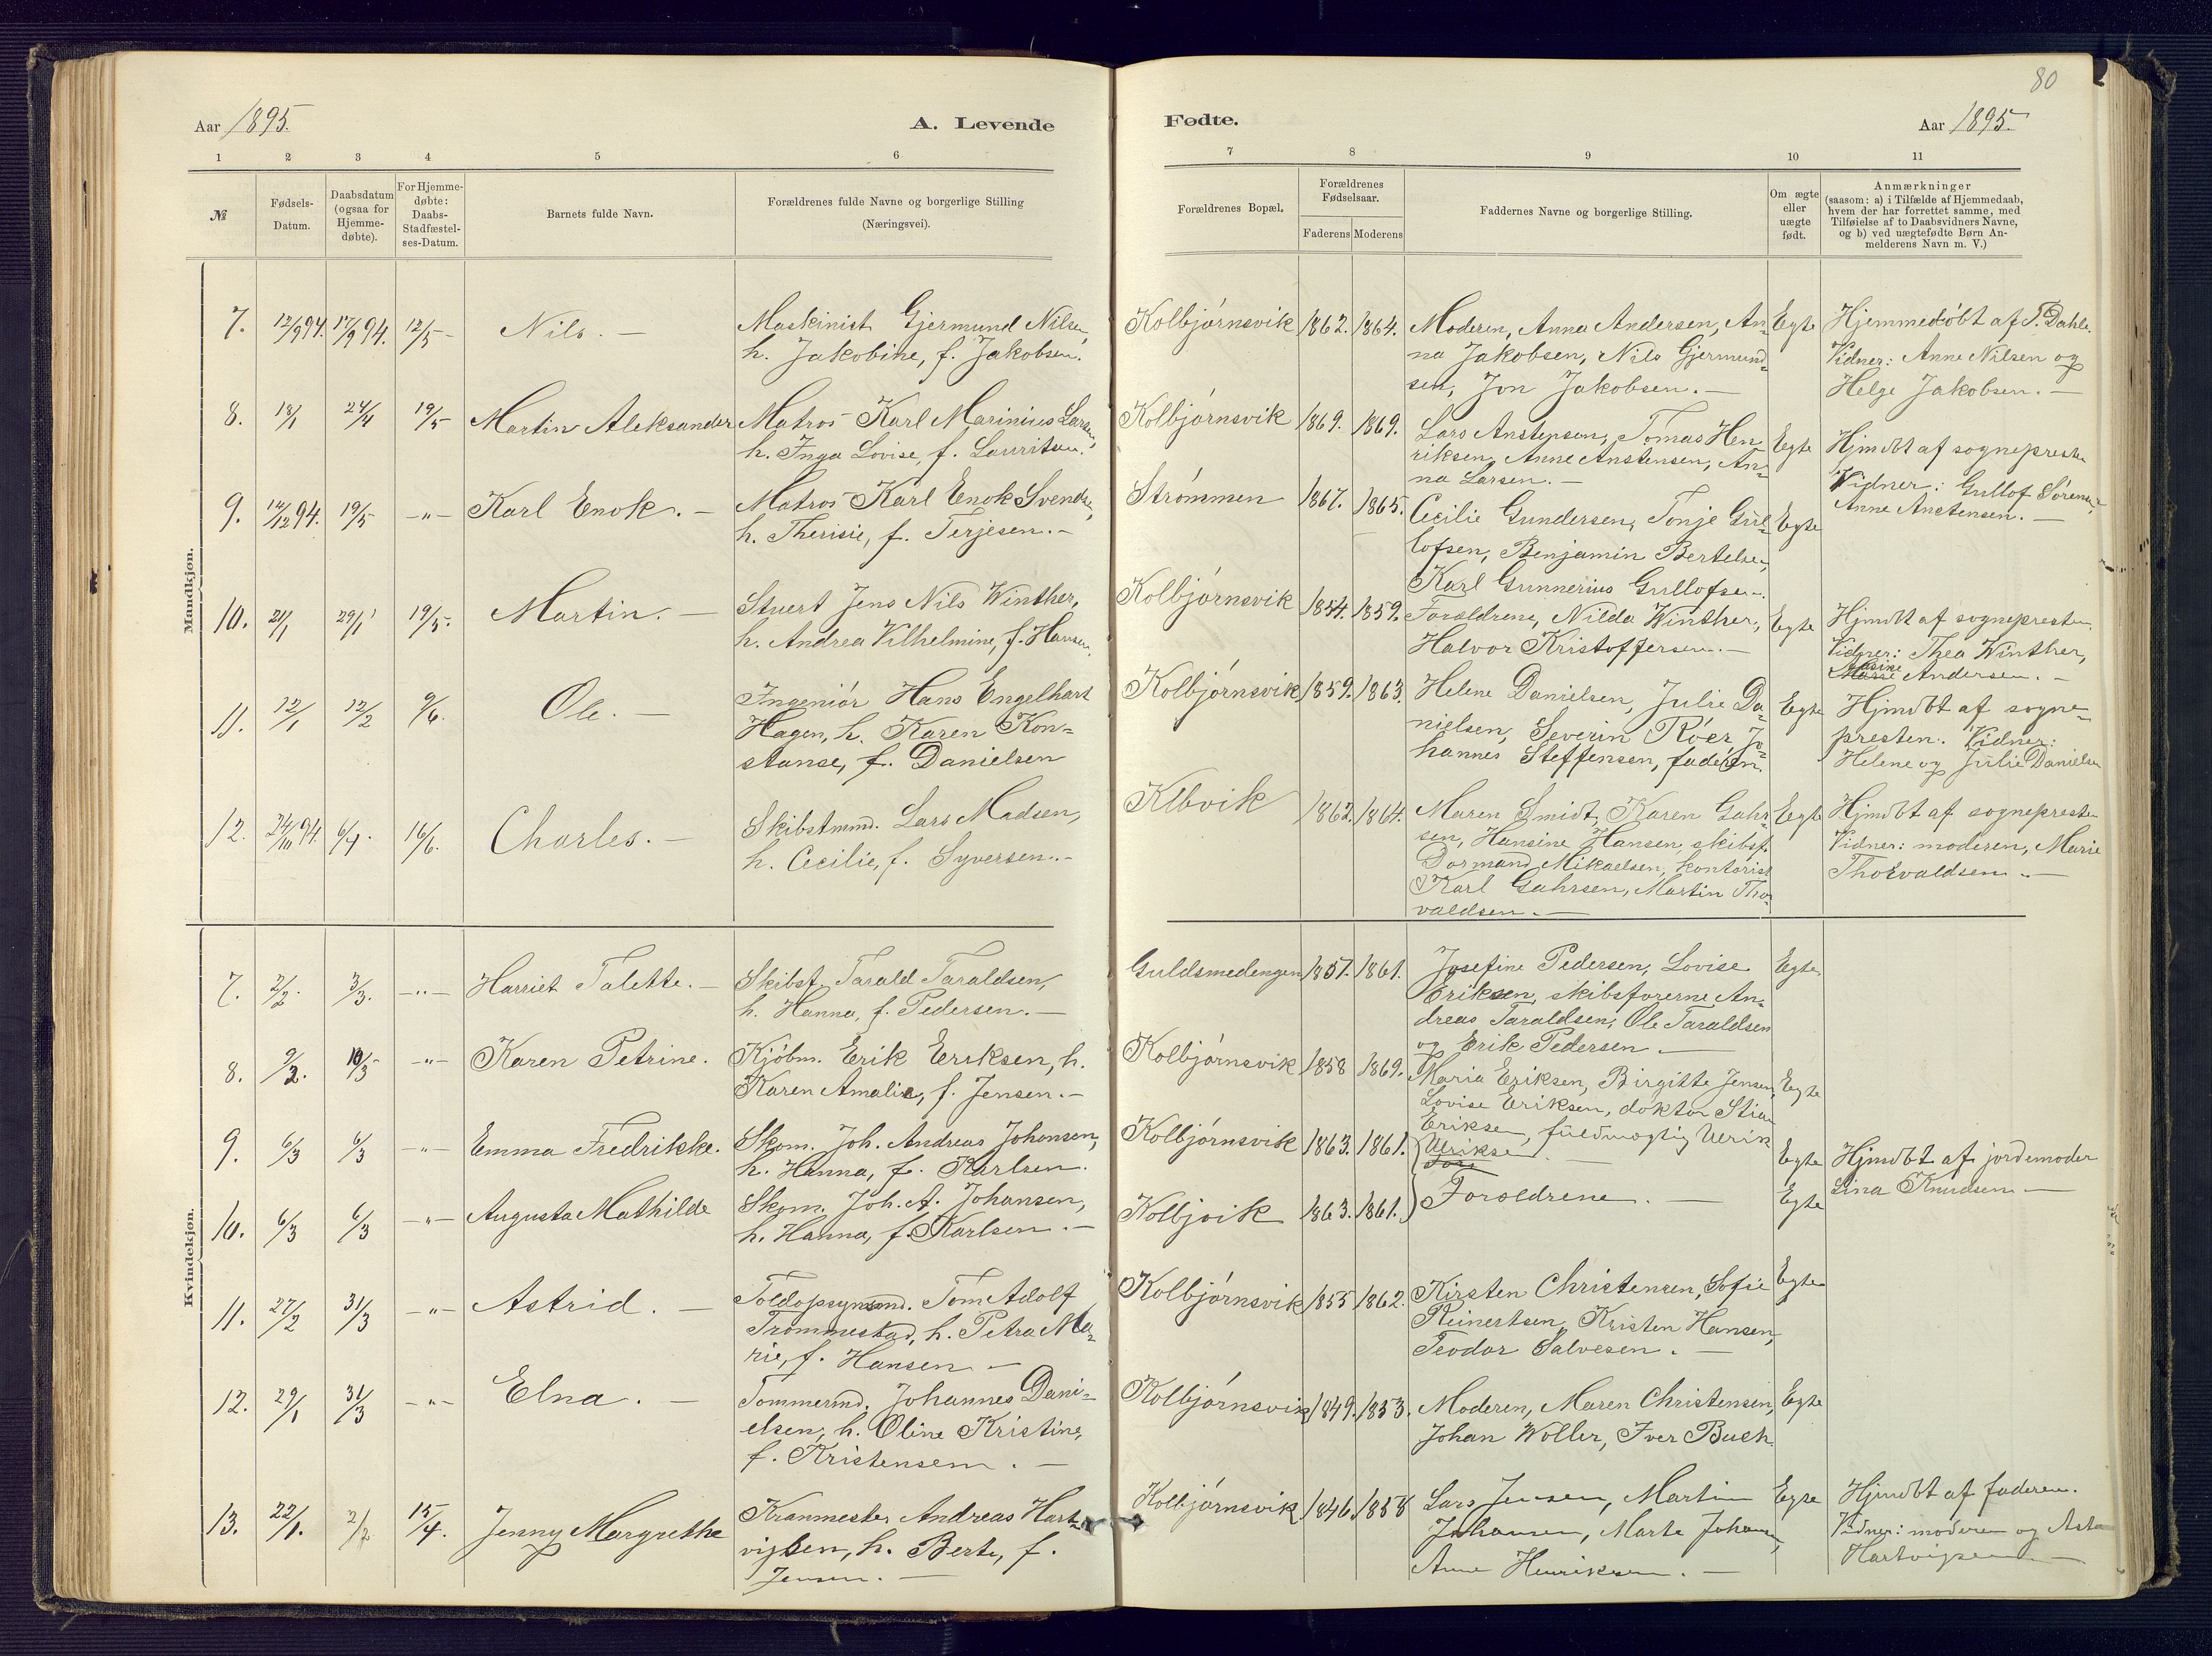 80
Aar 1895.
A. Levende
Fødte.
Aar 1895.
1 2 3 4 5 6
7 8 9 10 11
№
Fødsels-
Datum.
Daabsdatum
(ogsaa for
Hjemme-
døbte).
For Hjemme-
døbte:
Daabs-
Stadfæstel-
ses-Datum.
Barnets fulde Navn.
Forældrenes fulde Navne og borgerlige Stilling
(Næringsvei).
Forældrenes Bopæl.
Forældrenes
Fødselsaar.
Faderens Moderens
Faddernes Navne og borgerlige Stilling.
Om ægte
eller
uægte
født.
Anmærkninger
(saasom: a) i Tilfælde af Hjemmedaab,
hvem der har forrettet samme, med
Tilføielse af to Daabsvidners Navne,
og b) ved uægtefødte Børn An-
melderens Navn m. V.)
Mandkjøn.
7. 12/9 94. 17/9 94. 12/5 - Nils. -
Maskinist Gjermund Nilsen,
h. Jakobine, f. Jakobsen.
Kolbjørnsvik 1862. 1864.
Moderen, Anna Andersen, An-
na Jakobsen, Nils Gjermund-
sen, Jon Jakobsen. -
Egte
Hjemmedøbt af T. Dahle.
Vidner: Anne Nilsen og
Helge Jakobsen. -
8. 18/1 24/4 19/5 Martin Aleksander
Matros Karl Marinius Larsen,
h. Inga Lovise, f. Lauritsen.
Kolbjørnsvik 1869. 1869.
Lars Anstensen, Tomas Hen
riksen, Anne Anstensen, An-
na Larsen. -
Egte
Hjmdbt af sognepresten
Vidner: Gullof Sørensen,
Anne Anstensen. -
9. 14/12 94. 19/5 -"- Karl Enok. -
Matros Karl Enok Svendsen,
h. Therisie, f. Terjesen. -
Strømmen 1867. 1865.
Cecilie Gundersen, Tonje Gul-
lofsen, Benjamin Bertelsen,
Karl Gunnerius Gullofsen.
Egte
10. 21/1 29/1 19/5. Martin. -
Stuert Jens Nils Winther,
h. Andrea Vilhelmine, f. Hansen.
Kolbjørnsvik 1854. 1859.
Forældrene, Nilda Winther,
Halvor Kristoffersen. -
Egte
Hjmdbt af sognepresten.
Vidner: Thea Winther,
Andersen. -
11. 12/1 12/2 9/6. Ole. -
Ingeniør Hans Engelhart
Hagen, h. Karen Kon-
stanse, f. Danielsen
Kolbjørnsvik 1859. 1863.
Helene Danielsen, Julie Da-
nielsen, Severin Röer, Jo-
hannes Steffensen, faderen.
Egte
Hjmdbt af sogne-
presten. Vidner:
Helene og Julie Danielsen
12. 24/10 94. 6/4. 16/6. Charles. -
Skibstmmd. Lars Madsen,
h. Cecilie, f. Syversen. -
Klbvik 1862. 1864.
Maren Smidt, Karen Gahr-
sen, Hansine Hansen, skibsf.
Dormand Mikaelsen, kontorist
Karl Gahrsen, Martin Thor-
valdsen. -
Egte
Hjmdbt af sognepresten
Vidner: moderen, Marie
Thorvaldsen. -
Kvindekjøn.
7. 2/2. 3/3. -"- Harriet Talette. -
Skibsf. Tarald Taraldsen,
h. Hanna, f. Pedersen. -
Guldsmedengen 1857. 1861.
Josefine Pedersen, Lovise
Eriksen, skibsførerne An-
dreas Taraldsen, Ole Taraldsen
og Erik Pedersen. -
Egte
8. 9/2. 10/3 -"- Karen Petrine.
Kjøbm. Erik Eriksen, h.
Karen Amalie, f. Jensen. -
Kolbjørnsvik 1858 1869.
Maria Eriksen, Birgitte Jensen,
Lovise Eriksen, doktor Stian
Eriksen, fuldmægtig Ulrik
Ulriksen. -
Egte
9. 6/3 6/3 -"- Emma Fredrikke.
Skom. Joh. Andreas Johansen,
h. Hanna, f. Karlsen.
Kolbjørnsvik 1863. 1861.
Egte
Hjmdbt af jordemoder
Lina Knudsen. -
10. 6/3 6/3 -"- Augusta Mathilde
Skom. Joh. A. Johansen,
h. Hanna, f. Karlsen. -
Kolbjvik 1863. 1861.
Forældrene. -
Egte
11. 27/2 31/3 -"- Astrid. -
Toldopsynsmd. Tom Adolf
Trommestad, h. Petra Ma-
rie, f. Hansen -
Kolbjørnsvik 1855 1862.
Kirsten Christensen, Sofie
Reinertsen, Kristen Hansen,
Teodor Salvesen. -
Egte
12. 29/1 31/3 -"- Elna. -
Tømmermd. Johannes Dani-
elsen, h. Oline Kristine,
f. Kristensen. -
Kolbjørnsvik 1849. 1853.
Moderen, Maren Christensen,
Johan Woller, Iver Buch
Egte
13. 22/1. 2/2 15/4. Jenny Margrethe
Kranmester Andreas Hart-
vigsen, h. Berte, f.
Jensen. -
Kolbjørnsvik 1846. 1858
Lars Jensen, Martin
Johansen, Marte Johansen,
Anne Henriksen. -
Egte
Hjmdbt af faderen.
Vidner: moderen og Asta
Hartvigsen. -